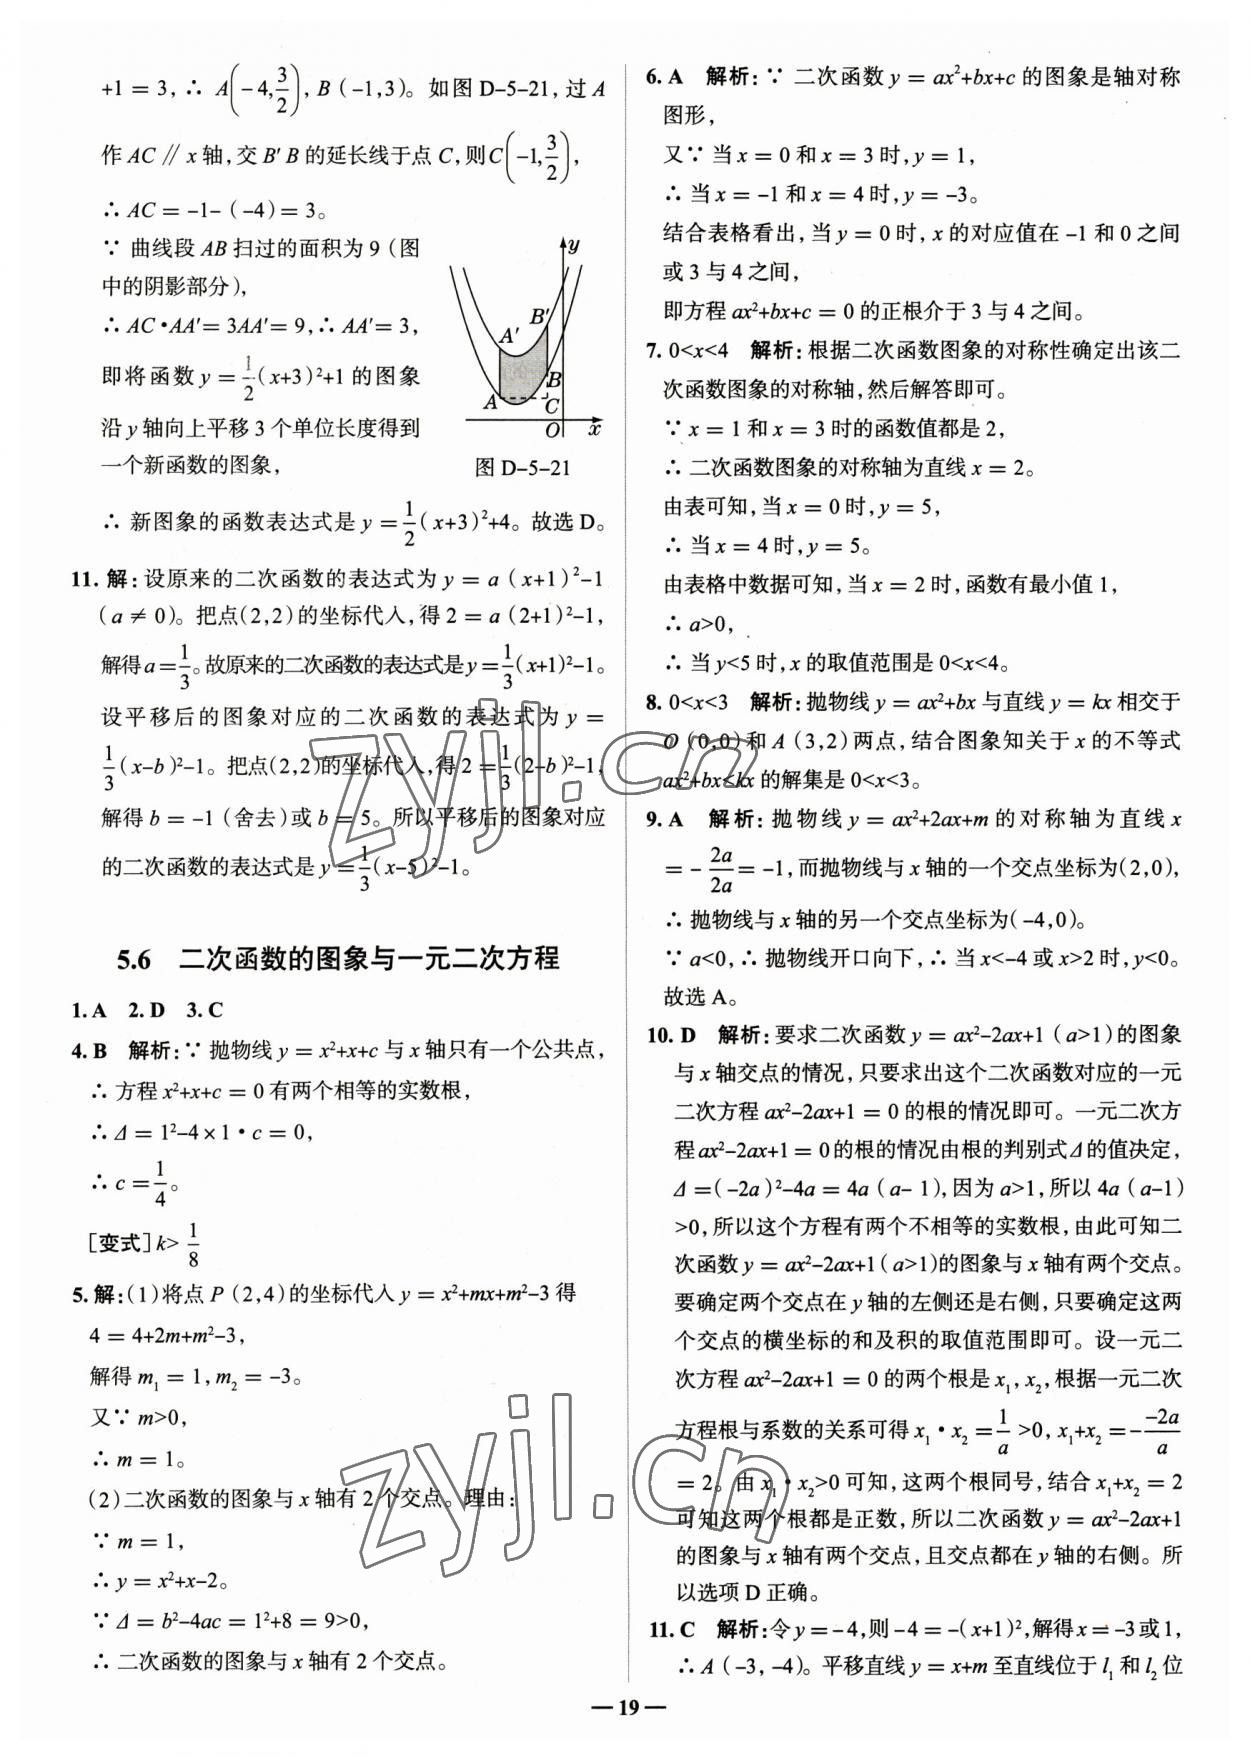 +1 = 3, ∴ A(-4, 3/2), B (-1,3)。如图 D-5-21, 过 A
作 AC // x 轴, 交 B′B 的延长线于点 C, 则 C(-1, 3/2),
∴ AC = -1-(-4) = 3。
∵ 曲线段 AB 扫过的面积为 9 (图
中的阴影部分),
∴ AC·AA′= 3AA′= 9, ∴ AA′= 3,
即将函数 y = 1/2 (x+3)²+1 的图象
沿 y 轴向上平移 3 个单位长度得到
一个新函数的图象,
y
A′
B′
A
B
C
O
x
图 D-5-21
∴ 新图象的函数表达式是 y = 1/2 (x+3)²+4。故选 D。
11. 解: 设原来的二次函数的表达式为 y = a (x+1)²-1
(a ≠ 0)。把点(2,2)的坐标代入, 得 2 = a (2+1)²-1,
解得 a = 1/3。故原来的二次函数的表达式是 y = 1/3 (x+1)²-1。
设平移后的图象对应的二次函数的表达式为 y =
1/3 (x-b)²-1。把点(2,2)的坐标代入, 得 2 = 1/3 (2-b)²-1,
解得 b = -1 (舍去)或 b = 5。所以平移后的图象对应
的二次函数的表达式是 y = 1/3 (x-5)²-1。
5.6 二次函数的图象与一元二次方程
1. A 2. D 3. C
4. B 解析: ∵ 抛物线 y = x²+x+c 与 x 轴只有一个公共点,
∴ 方程 x²+x+c = 0 有两个相等的实数根,
∴ Δ = 1²-4×1·c = 0,
∴ c = 1/4。
[变式] k> 1/8
5. 解: (1)将点 P (2,4)的坐标代入 y = x²+mx+m²-3 得
4 = 4+2m+m²-3,
解得 m₁ = 1, m₂ = -3。
又∵ m>0,
∴ m = 1。
(2)二次函数的图象与 x 轴有 2 个交点。理由:
∵ m = 1,
∴ y = x²+x-2。
∵ Δ = b²-4ac = 1²+8 = 9>0,
∴ 二次函数的图象与 x 轴有 2 个交点。
6. A 解析: ∵ 二次函数 y = ax²+bx+c 的图象是轴对称
图形,
又∵ 当 x = 0 和 x = 3 时, y = 1,
∴ 当 x = -1 和 x = 4 时, y = -3。
结合表格看出, 当 y = 0 时, x 的对应值在 -1 和 0 之间
或 3 与 4 之间,
即方程 ax²+bx+c = 0 的正根介于 3 与 4 之间。
7. 0<x<4 解析: 根据二次函数图象的对称性确定出该二
次函数图象的对称轴, 然后解答即可。
∵ x = 1 和 x = 3 时的函数值都是 2,
∴ 二次函数图象的对称轴为直线 x = 2。
由表可知, 当 x = 0 时, y = 5,
∴ 当 x = 4 时, y = 5。
由表格中数据可知, 当 x = 2 时, 函数有最小值 1,
∴ a>0,
∴ 当 y<5 时, x 的取值范围是 0<x<4。
8. 0<x<3 解析: 抛物线 y = ax²+bx 与直线 y = kx 相交于
O (0,0)和 A (3,2)两点, 结合图象知关于 x 的不等式
ax²+bx<kx 的解集是 0<x<3。
9. A 解析: 抛物线 y = ax²+2ax+m 的对称轴为直线 x
= - 2a/2a = -1, 而抛物线与 x 轴的一个交点坐标为(2,0),
∴ 抛物线与 x 轴的另一个交点坐标为(-4,0)。
∵ a<0, ∴ 抛物线开口向下, ∴ 当 x<-4 或 x>2 时, y<0。
故选 A。
10. D 解析: 要求二次函数 y = ax²-2ax+1 (a>1)的图象
与 x 轴交点的情况, 只要求出这个二次函数对应的一元
二次方程 ax²-2ax+1 = 0 的根的情况即可。一元二次方
程 ax²-2ax+1 = 0 的根的情况由根的判别式 Δ 的值决定,
Δ =(-2a)²-4a = 4a (a-1), 因为 a>1, 所以 4a (a-1)
>0, 所以这个方程有两个不相等的实数根, 由此可知二
次函数 y = ax²-2ax+1 (a>1)的图象与 x 轴有两个交点。
要确定两个交点在 y 轴的左侧还是右侧, 只要确定这两
个交点的横坐标的和及积的取值范围即可。设一元二
次方程 ax²-2ax+1 = 0 的两个根是 x₁, x₂, 根据一元二次
方程根与系数的关系可得 x₁·x₂ = 1/a >0, x₁+x₂ = - -2a/a
= 2。由 x₁·x₂>0 可知, 这两个根同号, 结合 x₁+x₂ = 2
可知这两个根都是正数, 所以二次函数 y = ax²-2ax+1
的图象与 x 轴有两个交点, 且交点都在 y 轴的右侧。所
以选项 D 正确。
11. C 解析: 令 y = -4, 则 -4 = -(x+1)², 解得 x = -3 或 1,
∴ A (-3, -4)。平移直线 y = x+m 至直线位于 l₁ 和 l₂ 位
— 19 —
zyjl.cn
zyjl.cn